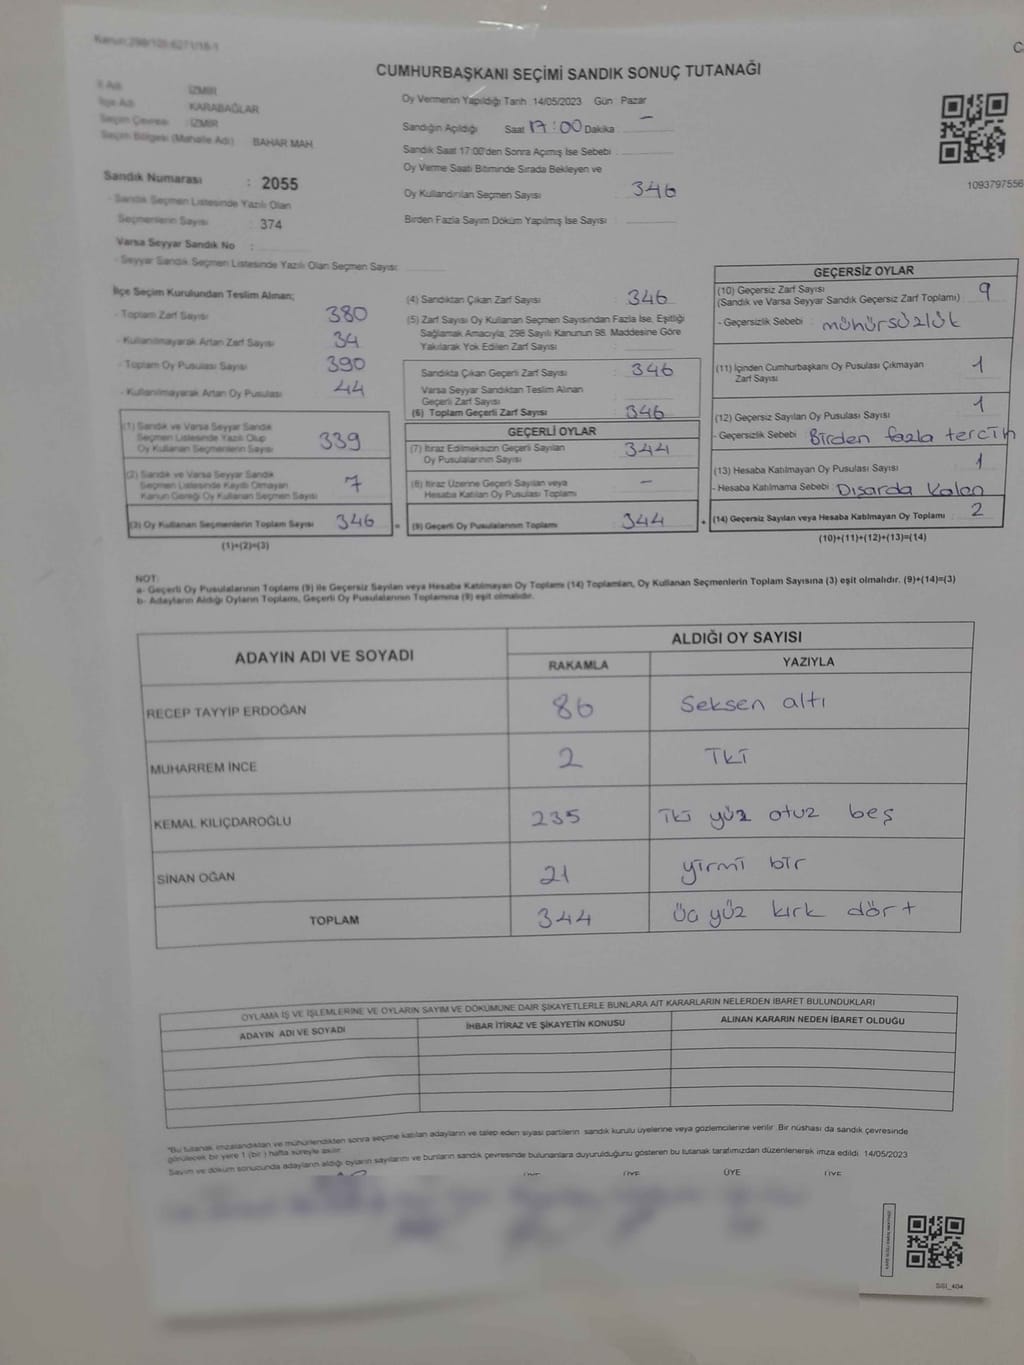 Kanun:298/105;6271/18-1
CUMHURBAŞKANI SEÇİMİ SANDIK SONUÇ TUTANAĞI
İl Adı : İZMİR
İlçe Adı : KARABAĞLAR
Seçim Çevresi : İZMİR
Seçim Bölgesi (Mahalle Adı) : BAHAR MAH.
Sandık Numarası : 2055
- Sandık Seçmen Listesinde Yazılı Olan
Seçmenlerin Sayısı : 374
Varsa Seyyar Sandık No :
- Seyyar Sandık Seçmen Listesinde Yazılı Olan Seçmen Sayısı:
Oy Vermenin Yapıldığı Tarih :14/05/2023 Gün : Pazar
Sandığın Açıldığı Saat 17:00 Dakika : -
Sandık Saat 17:00'den Sonra Açımış İse Sebebi :
Oy Verme Saati Bitiminde Sırada Bekleyen ve
Oy Kullandırılan Seçmen Sayısı : 346
Birden Fazla Sayım Döküm Yapılmış İse Sayısı :
1093797556
İlçe Seçim Kurulundan Teslim Alınan;
- Toplam Zarf Sayısı : 380
- Kullanılmayarak Artan Zarf Sayısı : 34
- Toplam Oy Pusulası Sayısı : 390
- Kullanılmayarak Artan Oy Pusulası : 44
(1) Sandık ve Varsa Seyyar Sandık
Seçmen Listesinde Yazılı Olup
Oy Kullanan Seçmenlerin Sayısı : 339
(2) Sandık ve Varsa Seyyar Sandık
Seçmen Listesinde Kayıtlı Olmayan
Kanun Gereği Oy Kullanan Seçmen Sayısı : 7
(3) Oy Kullanan Seçmenlerin Toplam Sayısı : 346
(1)+(2)=(3)
(4) Sandıktan Çıkan Zarf Sayısı : 346
(5) Zarf Sayısı Oy Kullanan Seçmen Sayısından Fazla İse, Eşitliği
Sağlamak Amacıyla; 298 Sayılı Kanunun 98. Maddesine Göre
Yakılarak Yok Edilen Zarf Sayısı :
Sandıkta Çıkan Geçerli Zarf Sayısı : 346
Varsa Seyyar Sandıktan Teslim Alınan
Geçerli Zarf Sayısı :
(6) Toplam Geçerli Zarf Sayısı : 346
GEÇERLİ OYLAR
(7) İtiraz Edilmeksizin Geçerli Sayılan
Oy Pusulalarının Sayısı : 344
(8) İtiraz Üzerine Geçerli Sayılan veya
Hesaba Katılan Oy Pusulası Toplamı : -
= (9) Geçerli Oy Pusulalarının Toplamı : 344 +
GEÇERSİZ OYLAR
(10) Geçersiz Zarf Sayısı
(Sandık ve Varsa Seyyar Sandık Geçersiz Zarf Toplamı) : 9
- Geçersizlik Sebebi : mühürsüzlük
(11) İçinden Cumhurbaşkanı Oy Pusulası Çıkmayan
Zarf Sayısı : 1
(12) Geçersiz Sayılan Oy Pusulası Sayısı : 1
- Geçersizlik Sebebi : Birden fazla tercih
(13) Hesaba Katılmayan Oy Pusulası Sayısı : 1
- Hesaba Katılmama Sebebi : Dısarda kalan
(14) Geçersiz Sayılan veya Hesaba Katılmayan Oy Toplamı : 2
(10)+(11)+(12)+(13)=(14)
NOT:
a- Geçerli Oy Pusulalarının Toplamı (9) ile Geçersiz Sayılan veya Hesaba Katılmayan Oy Toplamı (14) Toplamları, Oy Kullanan Seçmenlerin Toplam Sayısına (3) eşit olmalıdır. (9)+(14)=(3)
b- Adayların Aldığı Oyların Toplamı, Geçerli Oy Pusulalarının Toplamına (9) eşit olmalıdır.
ADAYIN ADI VE SOYADI ALDIĞI OY SAYISI
RAKAMLA YAZIYLA
RECEP TAYYİP ERDOĞAN 86 Seksen altı
MUHARREM İNCE 2 İki
KEMAL KILIÇDAROĞLU 235 iki yüz otuz beş
SİNAN OĞAN 21 yirmi bir
TOPLAM 344 üç yüz kırk dört
OYLAMA İŞ VE İŞLEMLERİNE VE OYLARIN SAYIM VE DÖKÜMÜNE DAİR ŞİKAYETLERLE BUNLARA AİT KARARLARIN NELERDEN İBARET BULUNDUKLARI
ADAYIN ADI VE SOYADI İHBAR İTİRAZ VE ŞİKAYETİN KONUSU ALINAN KARARIN NEDEN İBARET OLDUĞU
"Bu tutanak imzalandıktan ve mühürlendikten sonra seçime katılan adayların ve talep eden siyasi partilerin sandık kurulu üyelerine veya gözlemcilerine verilir. Bir nüshası da sandık çevresinde
görülecek bir yere 1 (bir) hafta süreyle asılır.
Sayım ve döküm sonucunda adayların aldığı oyların sayılarını ve bunların sandık çevresinde bulunanlara duyurulduğunu gösteren bu tutanak tarafımızdan düzenlenerek imza edildi. 14/05/2023
ÜYE ÜYE ÜYE ÜYE
SSI_404